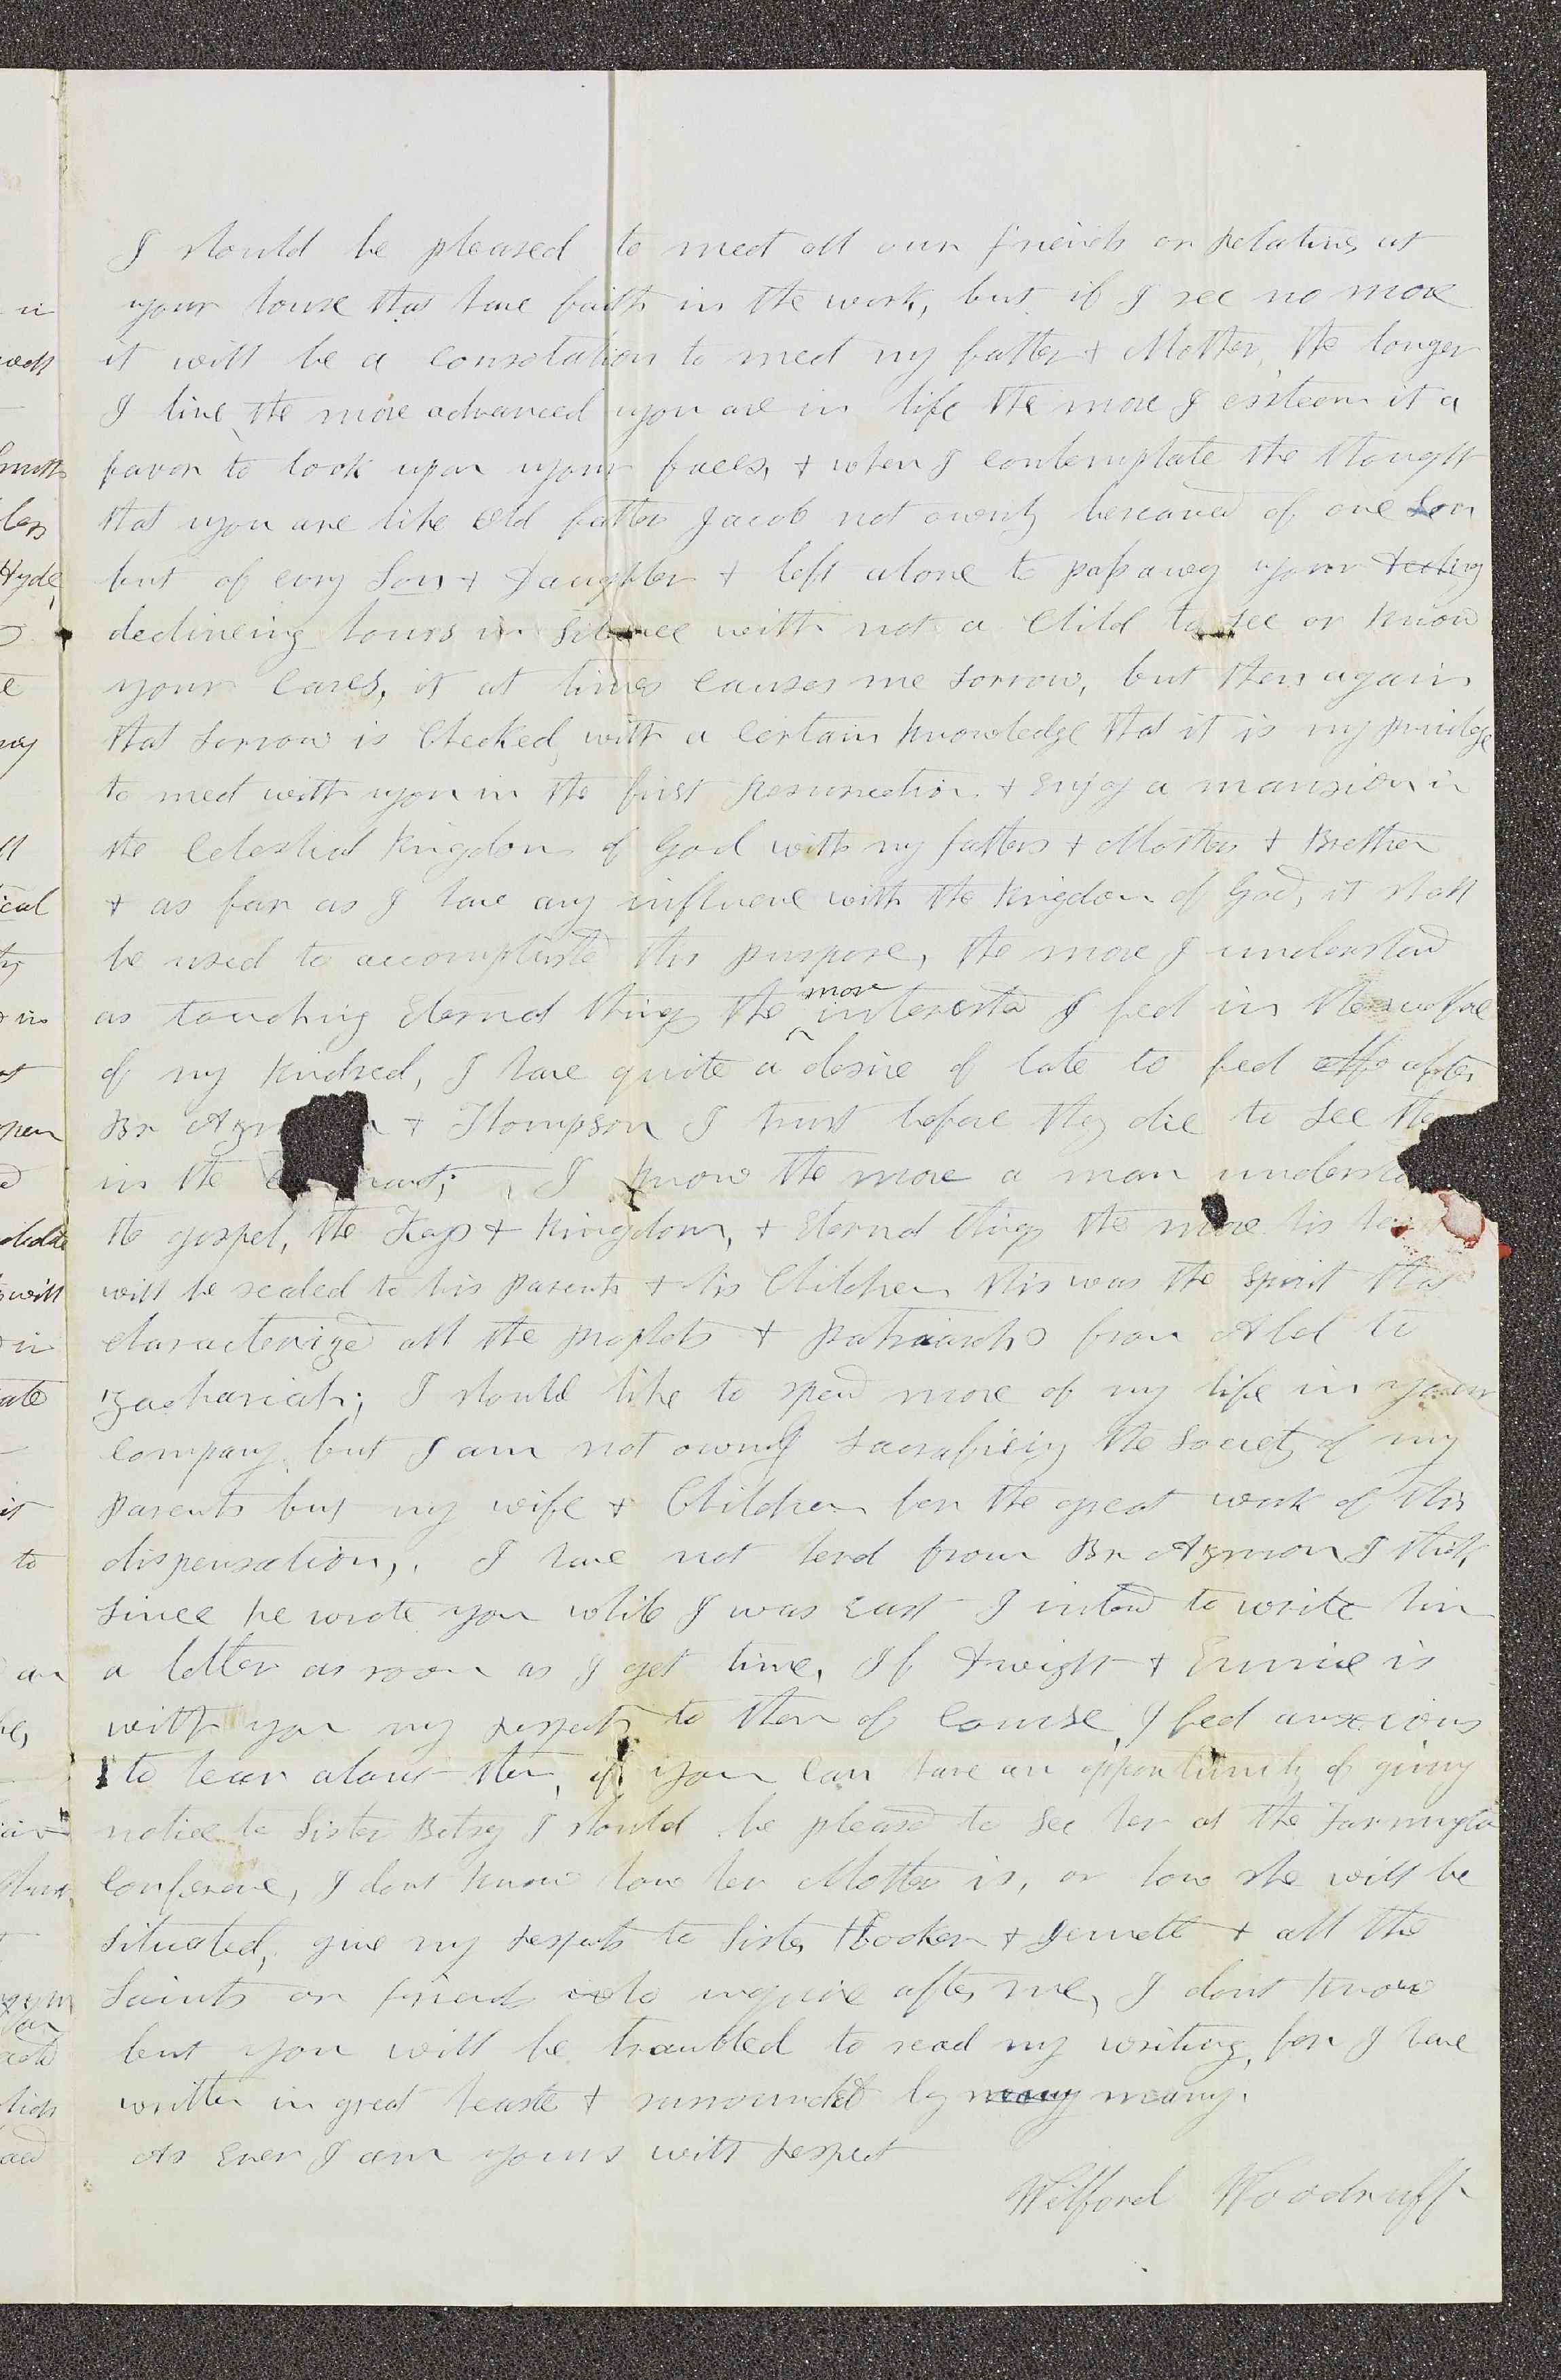 I should be pleased to meet all our friends or relatives at
your house that have faith in the work, but if I see no more
it will be a consolation to meet my father & Mother, the longer
I live, the more advanced you are in life the more I esteem it a
favor to look upon your faces, & when I contemplate the thought
that you are like old father Jacob not ownly bereaved of one Son
but of evry Son & Daughter & left alone to pass away your
declineing hours in Silence with not a Child to see or know
your Cares, it at times Causes me Sorrow, but then again
that Sorrow is Checked, with a Certain knowledge that it is my privilege
to meet with you in the first Resurrection & Enjoy a mansion in
the Celestial kingdom of God with my fathers & Mothers & Brethren
& as far as I have any influence with the kingdom of God, it shall
be used to accomplish this purpose, the more I understand
as touching Eternal things the more interested I feel in the welfare
of my kindred, I have quite a desire of late to feel after
Br Azmon & Thompson I trust before they die to See them
in the I know the more a man understands
the gospel, the Keys & kingdom, & Eternal things the more his
will be sealed to his parents & his Children this was the Spirit that
characterized all the prophets & patriarchs from Abel to
Zachariah; I should like to spend more of my life in your
Company, but I am not ownly Sacraficeing the Society of my
parents but my wife & Children for the great work of this
dispensation,. I have not herd from Br Azmon I think
Since he wrote you while I was East I intend to write him
a letter as soon as I get time, If Dwight & Eunice is
with you my respects to them of Course, I feel anxious
to hear about them, if you Can have an opportunity of giving
notice to Sister Betsey I should be pleased to See her at the Farmington
Conference, I dont know how her Mother is, or how she will be
Situated, give my respects to Sister Hooker & Jennett & all the
Saints or friends who inquire after me, I dont know
but you will be troubled to read my writing, for I have
written in great heaste & surrounded by many many.
As Ever I am yours with respect
Wilford Woodruff